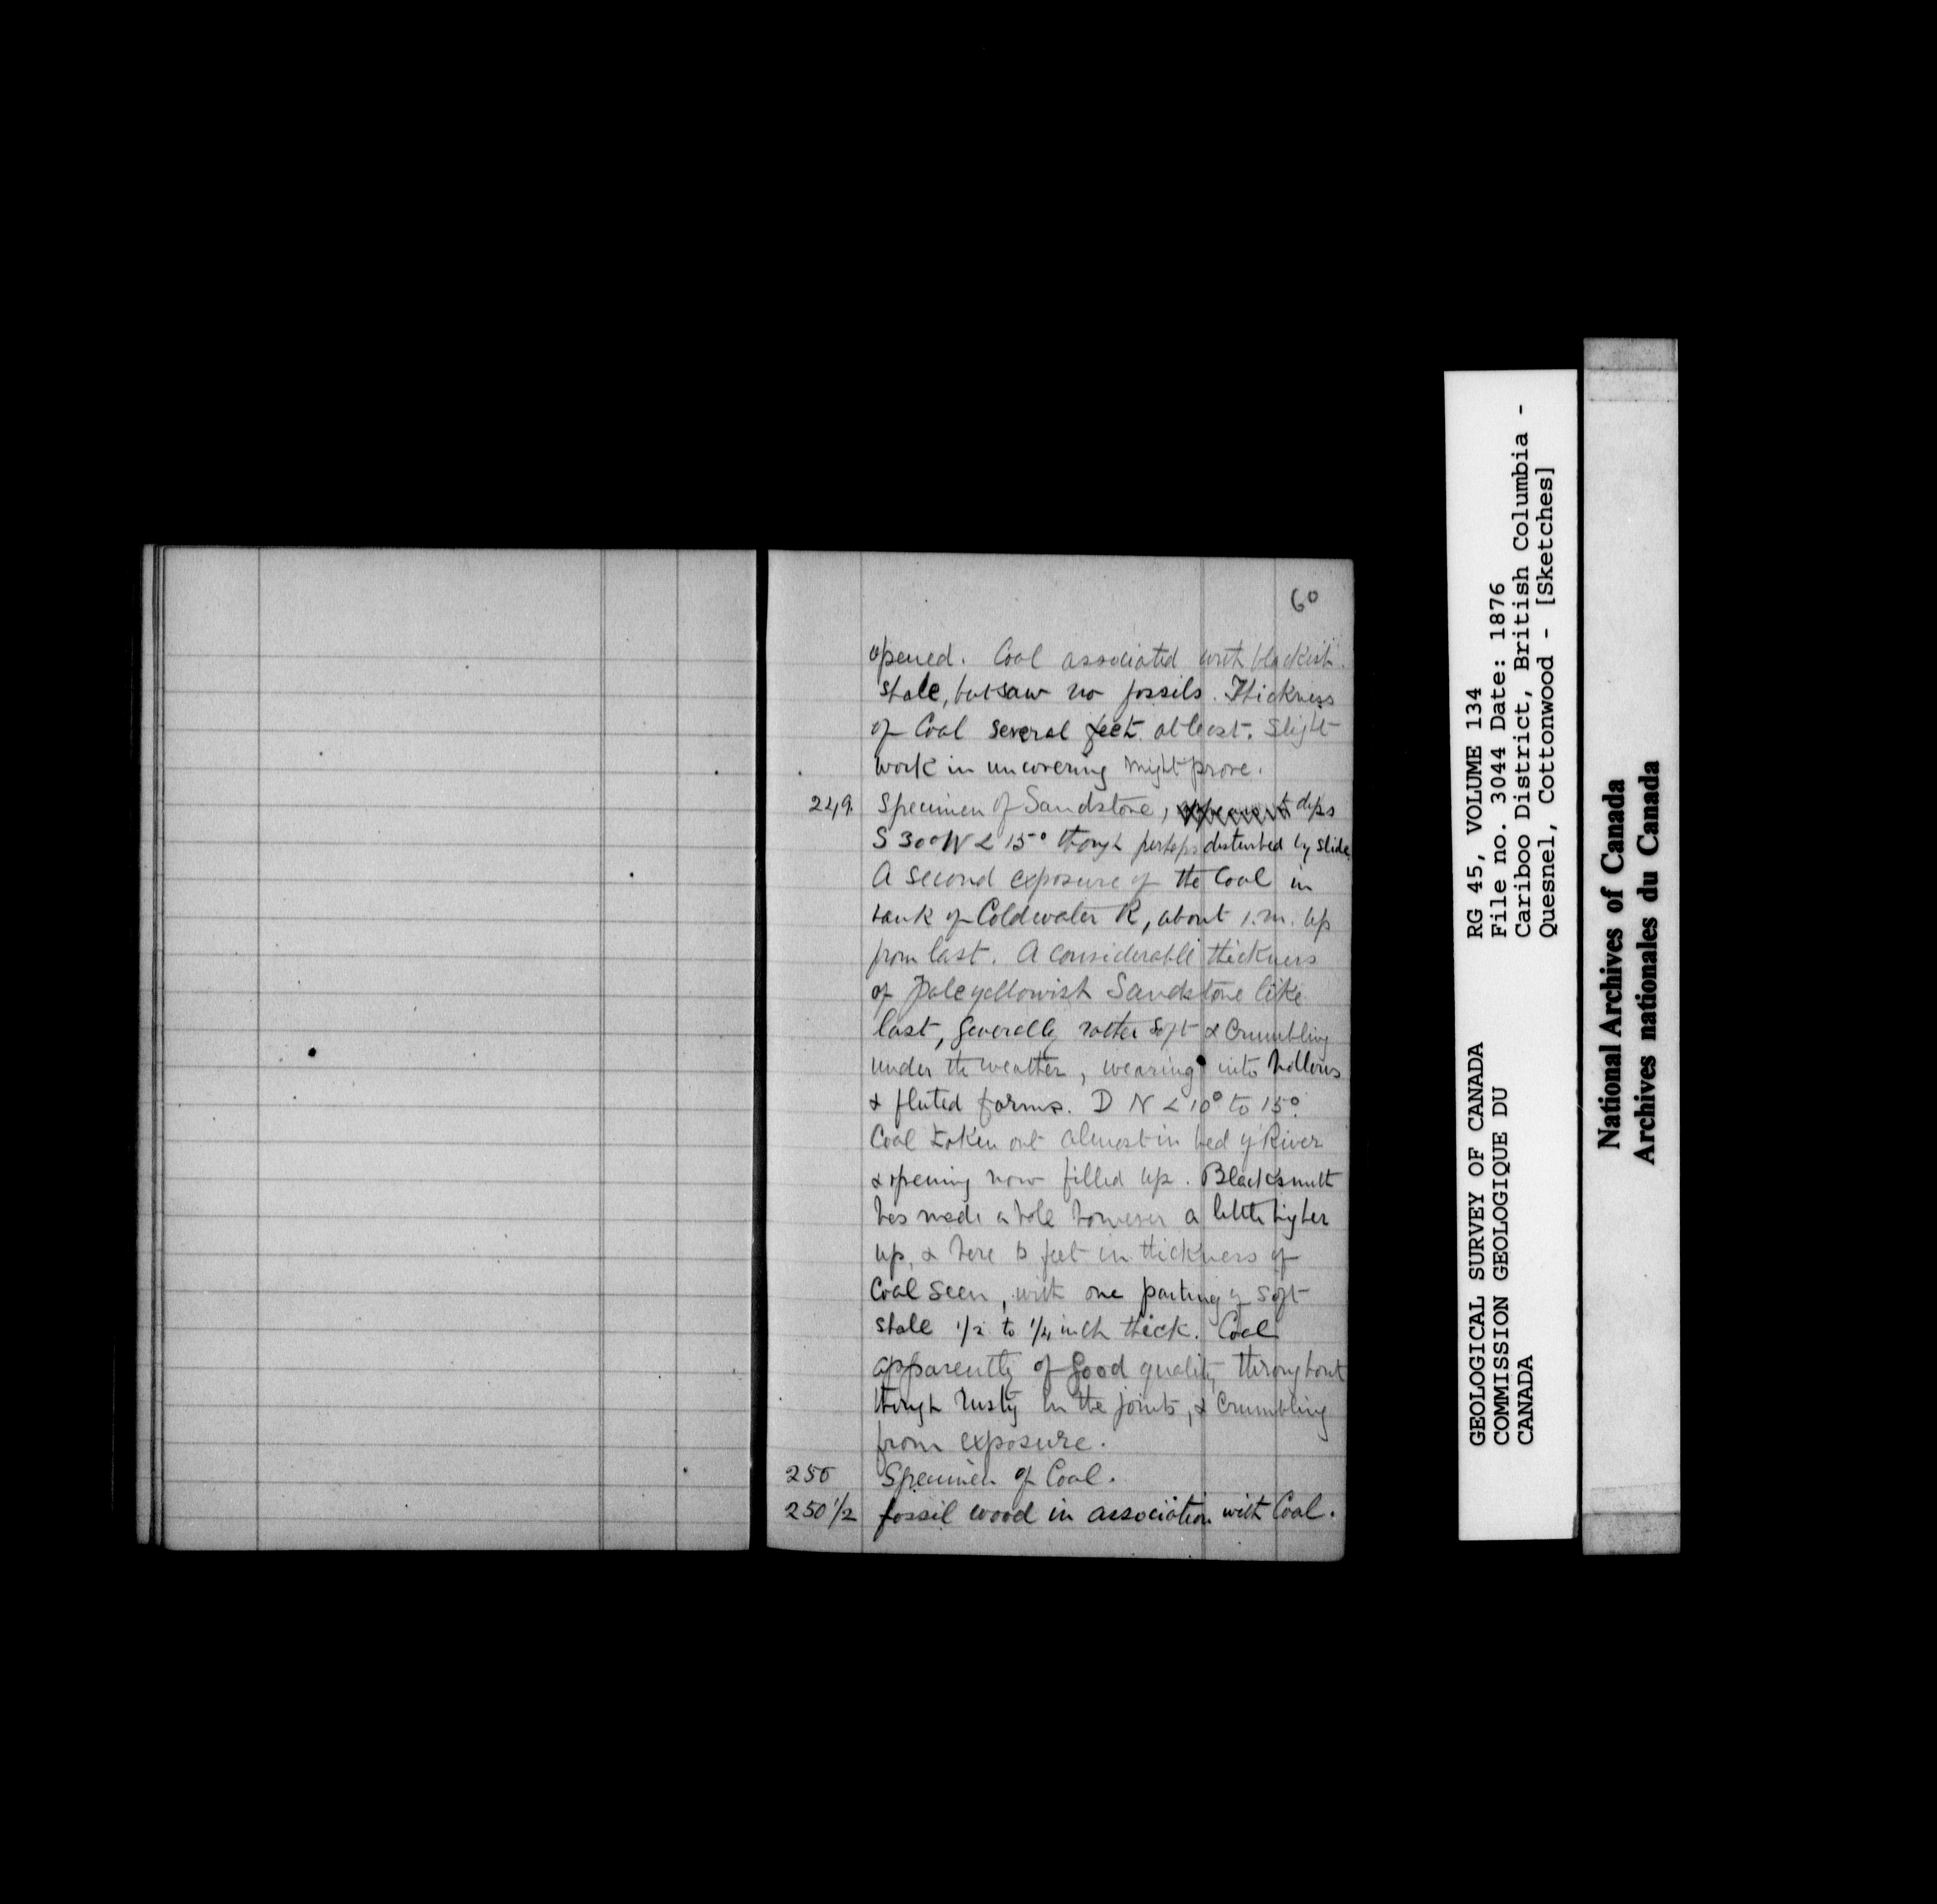 60
opened. Coal associated with blackish
shale, but saw no fossils. Thickness
of Coal several feet at least. Slight
work in uncovering might prove.
249. Specimen of Sandstone, dips
S 30° W < 15° though perhaps disturbed by slide
A second exposure of the Coal in
bank of Coldwater R, about 1. m. up
from last. A considerable thickness
of pale yellowish Sandstone like
last, generally rather soft & crumbling
under the weather, wearing into hollows
& fluted forms. D N < 10° to 15°.
Coal taken out almost in bed of River
& opening now filled up. Blacksmith
has made a hole however a little higher
up, & here feet in thickness of
Coal seen, with one parting of soft
shale 1/2 to 1/4 inch thick. Coal
apparently of good quality throughout
though rusty in the joints, & crumbling
from exposure.
250 Specimen of Coal.
250 1/2 fossil wood in association with Coal.
GEOLOGICAL SURVEY OF CANADA
COMMISSION GEOLOGIQUE DU
CANADA
RG 45, VOLUME 134
File no. 3044 Date: 1876
Cariboo District, British Columbia -
Quesnel, Cottonwood - [Sketches]
National Archives of Canada
Archives nationales du Canada